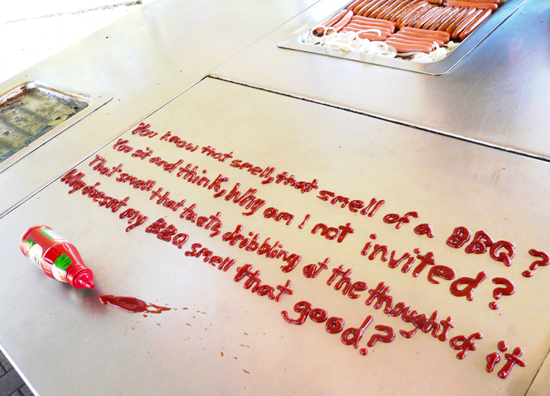 You know that smell, that smell of a BBQ?
You sit and think, Why am I not invited?
That smell that thats dribbling at the thought of it
Why doesnt my BBQ smell that good?